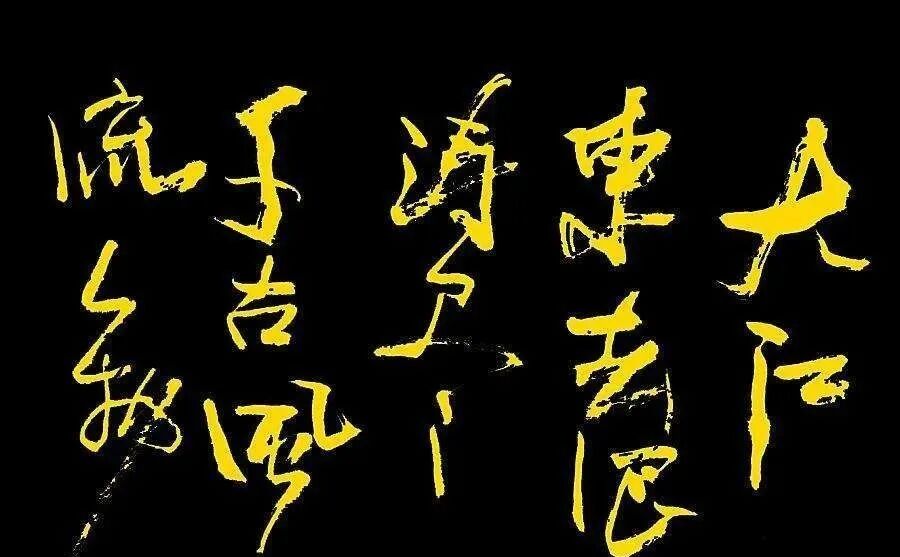 大江
東去浪
淘尽
千古風
流人物